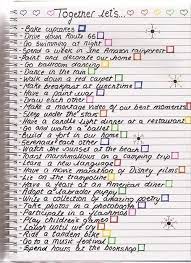 Together let's...
- Bake cupcakes
- Drive down Route 66
- Go swimming at night
- Spend a week in the Amazon rainforest
- Paint and decorate our home
- Go ballroom dancing
- Dance in the rain
- Walk down the red carpet
- Make breakfast at lunchtime
- Have a paint war
- Draw each other
- Make a montage video of our best moments
- Sleep under the stars
- Have a candle light dinner at a restaurant
- Go and watch a ballet
- Build a fort in our home
- Serenade each other
- Watch the sunset at the beach
- Toast marshmallows on a camping trip
- Learn a new language
- Have a movie marathon of Disney films
- Lie on the trampoline
- Have a feast at an American diner
- Adopt a labrador puppy
- Write a collection of amazing poetry
- Take photos in a photobooth
- Participate in a flashmob
- Play childrens games
- Laugh until we cry
- Ride a tandem bike
- Go to a music festival
- Spend hours at the bookshop